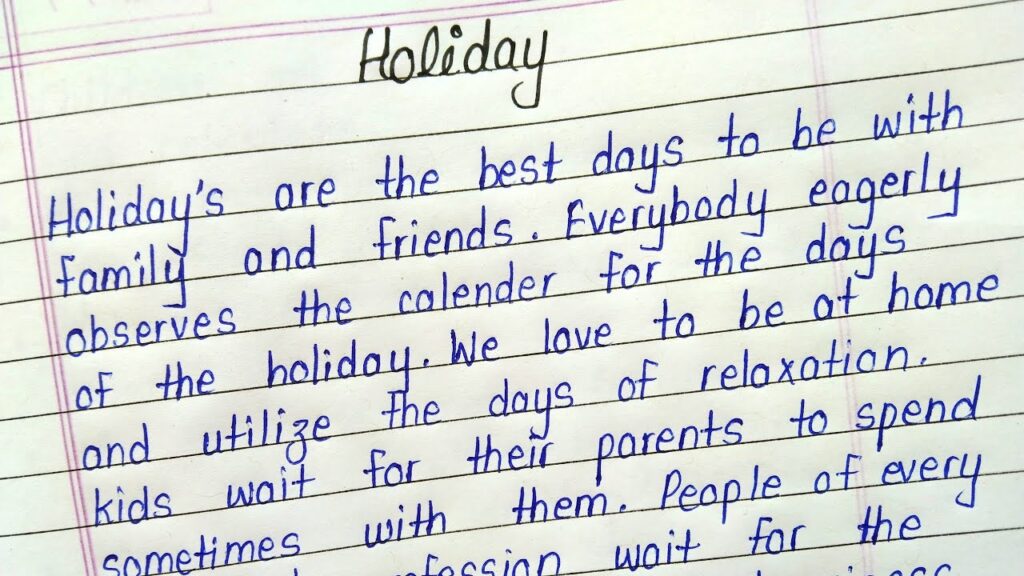 Holiday
Holiday's are the best days to be with
family and friends. Everybody eagerly
observes the calender for the days
of the holiday. We love to be at home
and utilize the days of relaxation.
kids wait for their parents to spend
sometimes with them. People of every
wait for the